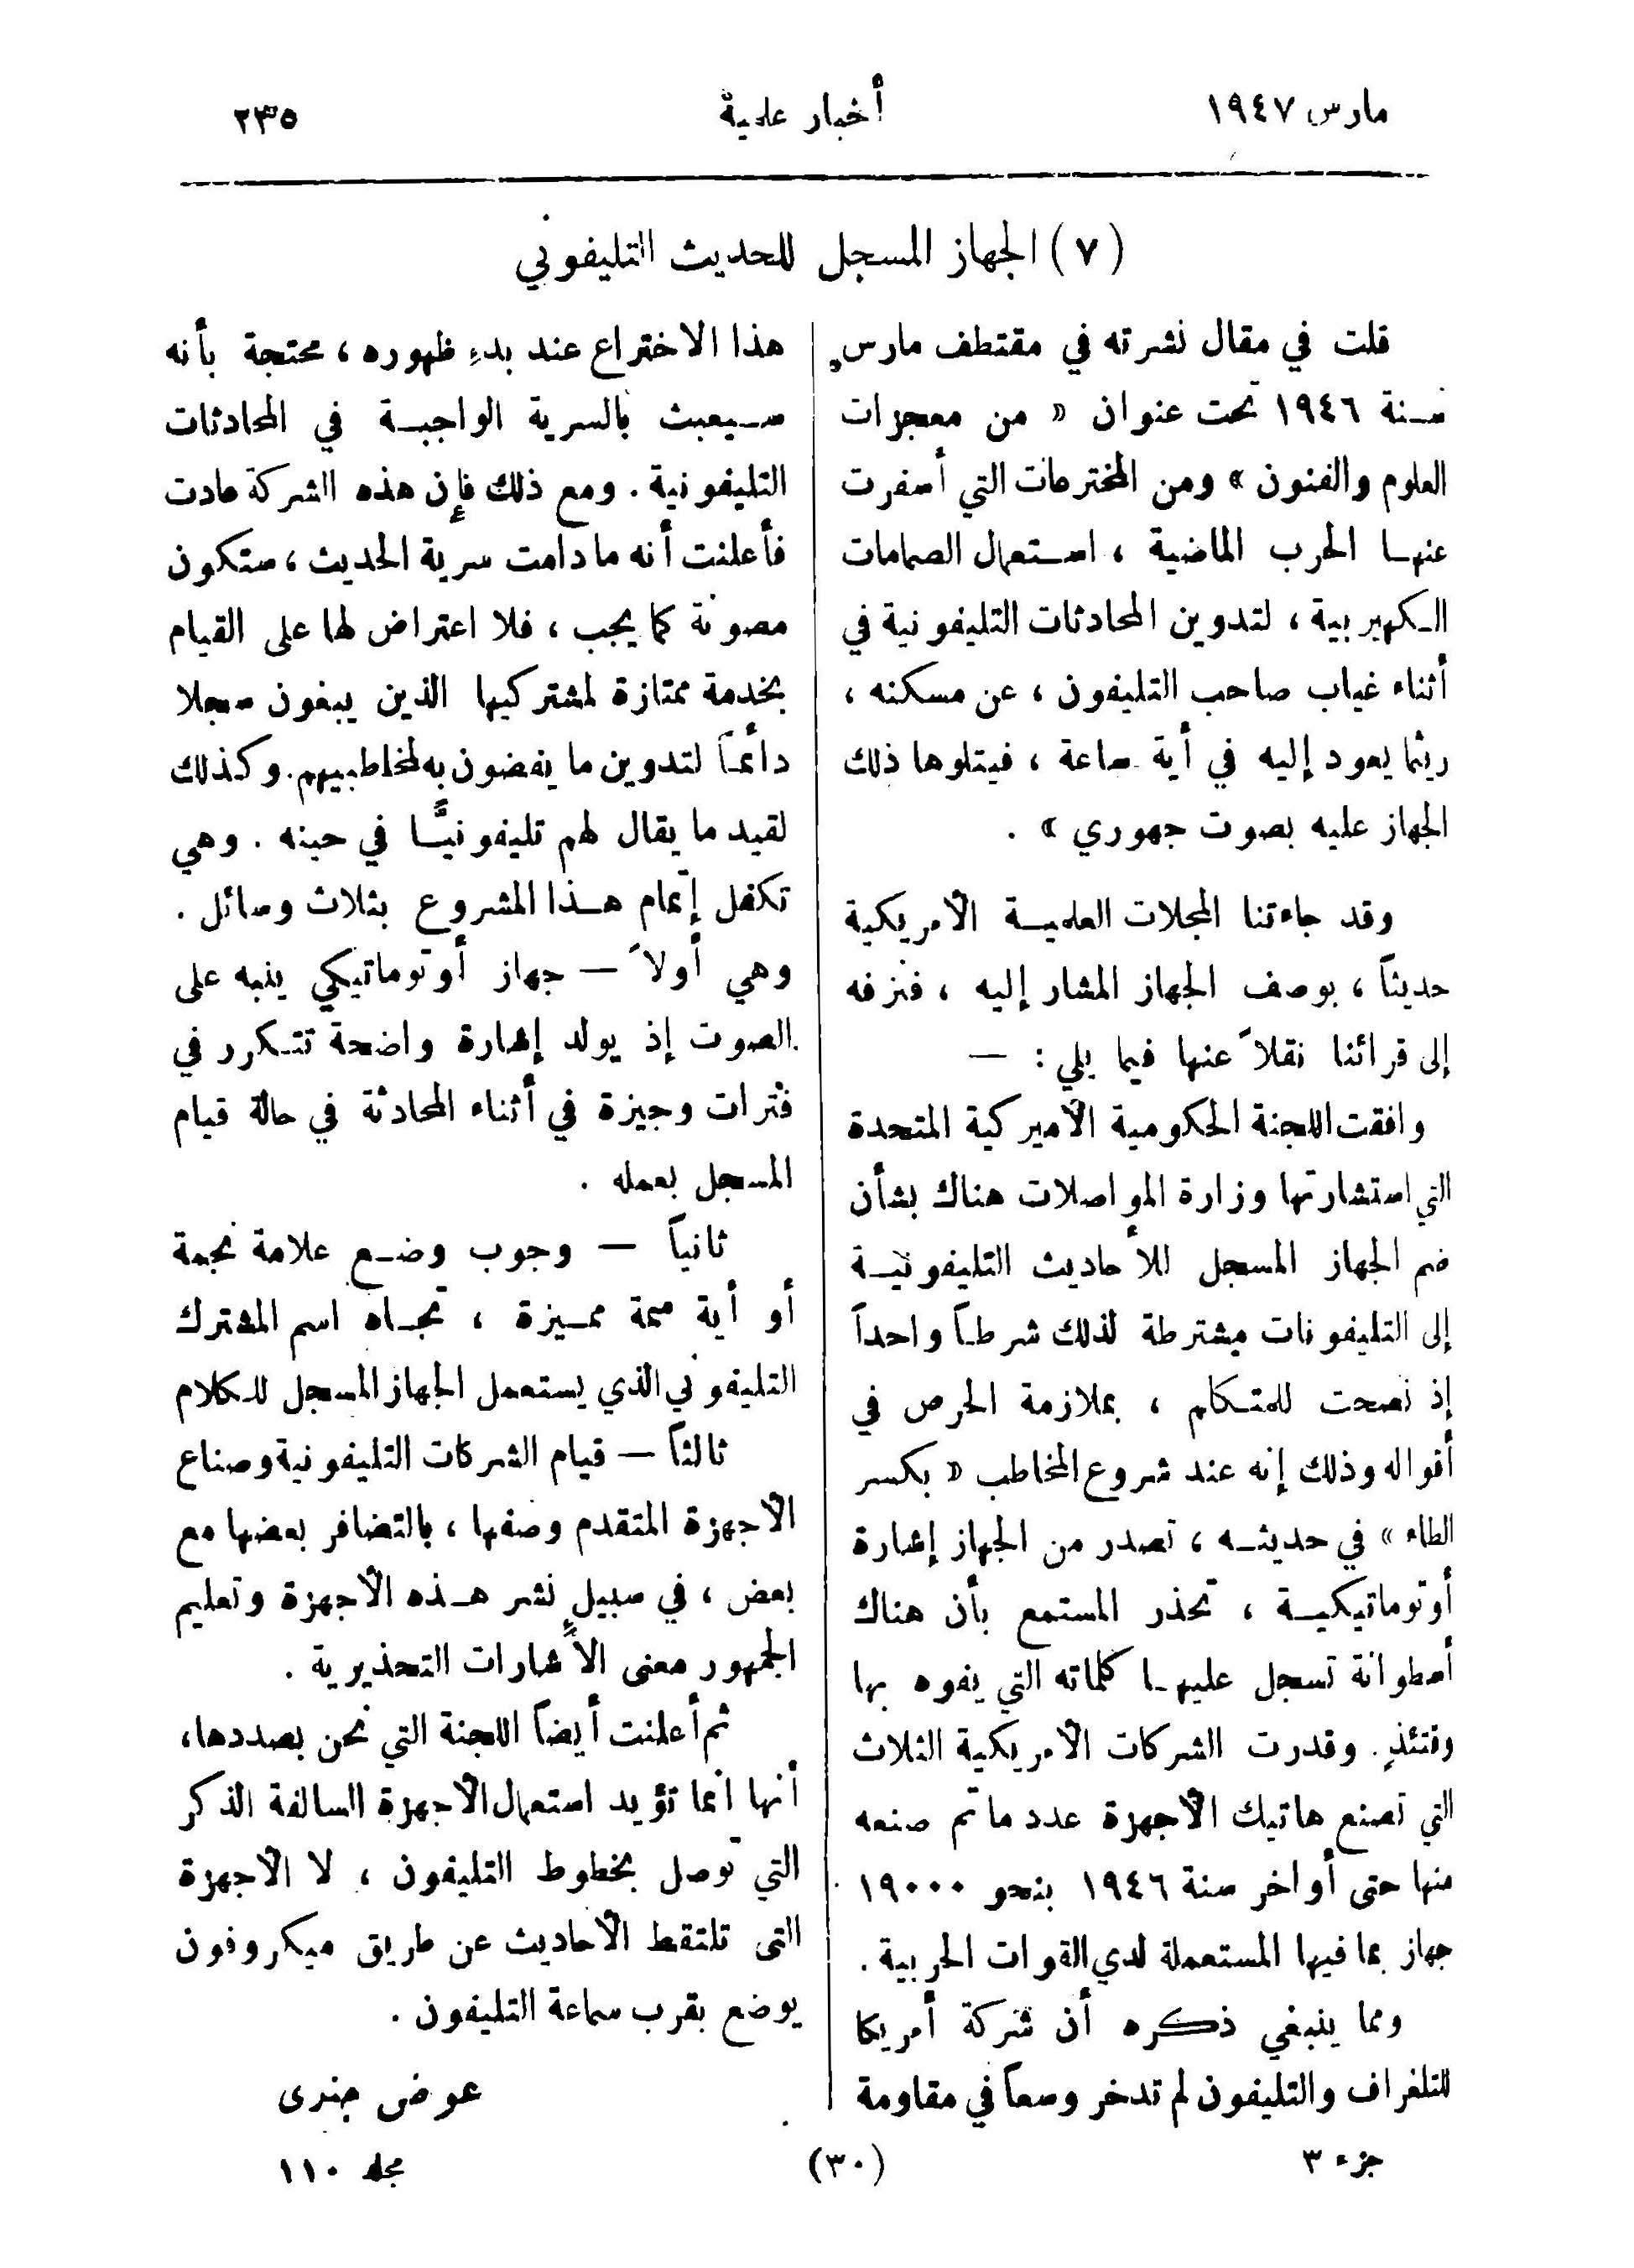 مارس ١٩٤٧
أخبار علمية
٢٣٥
(٧) الجهاز المسجل للحديث التليفوني
قلت في مقال نشرته في مقتطف مارس
سنة ١٩٤٦ تحت عنوان « من معجزات
العلوم والفنون » ومن المخترعات التي أسفرت
عنها الحرب الماضية ، استعمال الصمامات
الكهربية ، لتدوين المحادثات التليفونية في
أثناء غياب صاحب التليفون ، عن مسكنه ،
ريثما يعود إليه في أية ساعة ، فيتلوها ذلك
الجهاز عليه بصوت جهوري » .
وقد جاءتنا المجلات العلمية الأمريكية
حديثاً ، بوصف الجهاز المشار إليه ، فنزفه
إلى قرائنا نقلاً عنها فيما يلي : —
وافقت اللجنة الحكومية الأميركية المتحدة
التي استشارتها وزارة المواصلات هناك بشأن
ضم الجهاز المسجل للأحاديث التليفونية
إلى التليفونات مشترطة لذلك شرطاً واحداً
إذ نصحت للمتكلم ، بملازمة الحرص في
أقواله وذلك إنه عند شروع المخاطب « بكسر
الطاء » في حديثه ، تصدر من الجهاز إشارة
أوتوماتيكية ، تحذر المستمع بأن هناك
أسطوانة تسجل عليها كلماته التي يفوه بها
وقتئذٍ . وقدرت الشركات الأمريكية الثلاث
التي تصنع هاتيك الأجهزة عدد ما تم صنعه
منها حتى أواخر سنة ١٩٤٦ بنحو ١٩٠٠٠
جهاز بما فيها المستعملة لدي القوات الحربية .
ومما ينبغي ذكره أن شركة أمريكا
للتلغراف والتليفون لم تدخر وسعاً في مقاومة
هذا الاختراع عند بدءِ ظهوره ، محتجة بأنه
سيعبث بالسرية الواجبة في المحادثات
التليفونية . ومع ذلك فإن هذه الشركة عادت
فأعلنت أنه ما دامت سرية الحديث ، ستكون
مصونة كما يجب ، فلا اعتراض لها على القيام
بخدمة ممتازة لمشتركيها الذين يبغون سجلا
دائماً لتدوين ما يفضون به لمخاطبيهم . وكذلك
لقيد ما يقال لهم تليفونيًّا في حينه . وهي
تكفل إتمام هذا المشروع بثلاث وسائل .
وهي أولاً — جهاز أوتوماتيكي ينبه على
الصوت إذ يولد إشارة واضحة تتكرر في
فترات وجيزة في أثناء المحادثة في حالة قيام
المسجل بعمله .
ثانياً — وجوب وضع علامة نجمة
أو أية سمة مميزة ، تجاه اسم المشترك
التليفوني الذي يستعمل الجهاز المسجل للكلام
ثالثاً — قيام الشركات التليفونية وصناع
الأجهزة المتقدم وصفها ، بالتضافر بعضها مع
بعض ، في سبيل نشر هذه الأجهزة وتعليم
الجمهور معنى الإشارات التحذيرية .
ثم أعلنت أيضاً اللجنة التي نحن بصددها ،
أنها انما تؤيد استعمال الأجهزة السالفة الذكر
التي توصل بخطوط التليفون ، لا الأجهزة
التى تلتقط الأحاديث عن طريق ميكروفون
يوضع بقرب سماعة التليفون .
عوض جندى
جزء ٣
(٣٠)
مجلد ١١٠